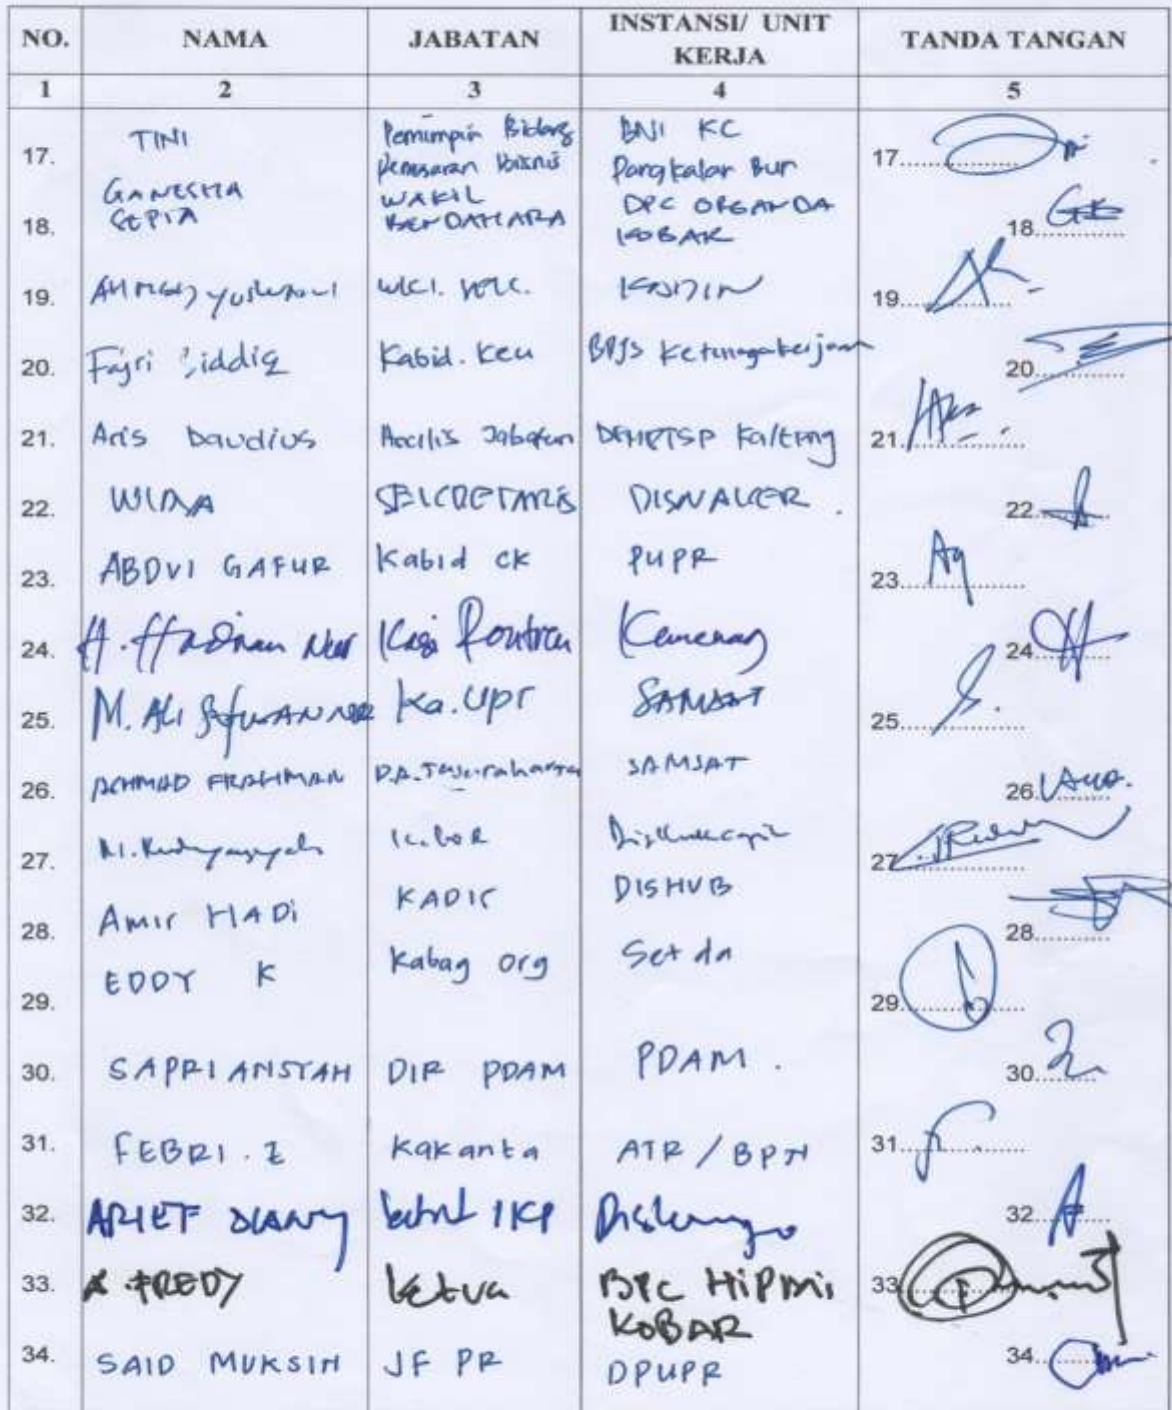 NO. NAMA JABATAN INSTANSI/ UNIT KERJA TANDA TANGAN
1 2 3 4 5
17. TINI Pemimpin Bidang Pemasaran Bisnis BNI KC Pangkalan Bun 17
18. GANESHA SEPTA WAKIL BENDAHARA DPC ORGANDA KOBAR 18
19. KADIN 19
20. Fajri Siddiq Kabid. Keu BPJS Ketenagakerjaan 20
21. Aris Daudius Analis Jabatan Kalteng 21
22. SEKRETARIS DISNAKER. 22
23. ABDUL GAFUR Kabid CK PUPR 23
24. Kasi Kemenag 24
25. M. ALI Ka. UPT SAMSAT 25
26. ACHMAD SAMSAT 26
27. M. Disdukcapil 27
28. Amir HADI KADIS DISHUB 28
29. EDDY K Kabag Org Setda 29
30. SAPRIANSYAH DIR PDAM PDAM. 30
31. FEBRI. Z Kakanta ATR / BPN 31
32. ARIEF IKP 32
33. FREDY Ketua BPC HiPMi KOBAR 33
34. SAID MUKSIN JF PR DPUPR 34